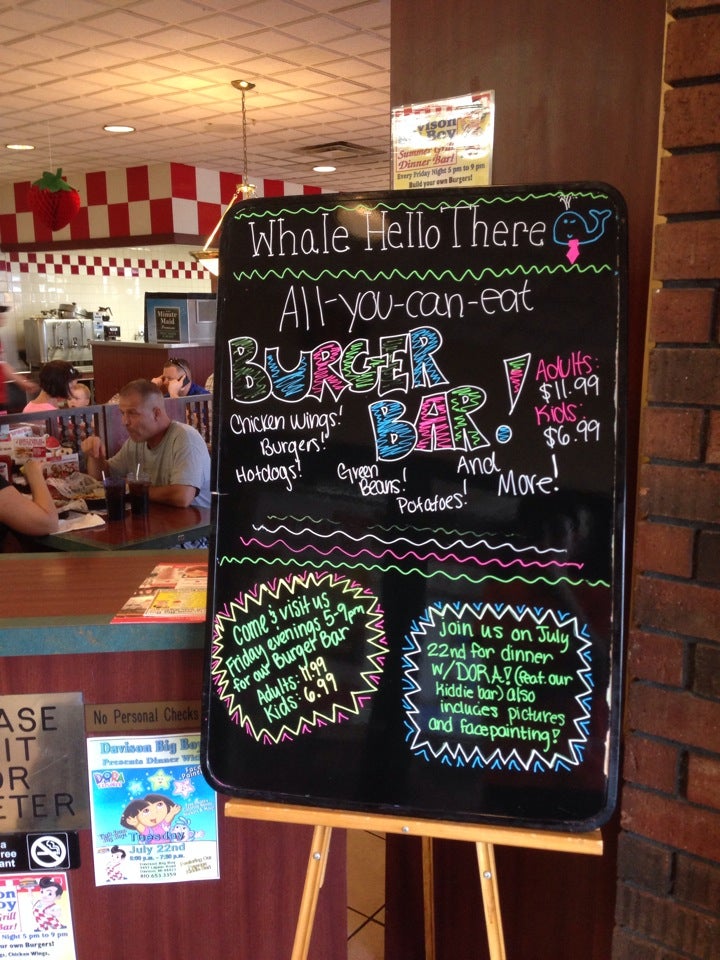 vison
Boy
Summer Grill
Dinner Bar!
Every Friday Night 5 pm to 9 pm
Build your own Burgers!
Whale Hello There
All-you-can-eat
BURGER
BAR!
Adults:
$11.99
Kids:
$6.99
Chicken wings!
Burgers!
Hotdogs!
Green
Beans!
Potatoes!
And
More!
Come & visit us
Friday evenings 5-9pm
for our Burger Bar
Adults: 11.99
Kids: 6.99
join us on July
22nd for dinner
w/DORA! (feat. our
kiddie bar) also
includes pictures
and facepainting!
Minute
Maid
No Personal Checks
EASE
IT
OR
ETER
Davison Big Boy
Presents Dinner With
DORA
Face
Tuesday
July 22nd
6:00 p.m. - 7:30 p.m.
Davison Big Boy
810.653.3359
a
ree
ant
on
oy
Grill
Bar!
Night 5 pm to 9 pm
our own Burgers!
gs, Chicken Wings,